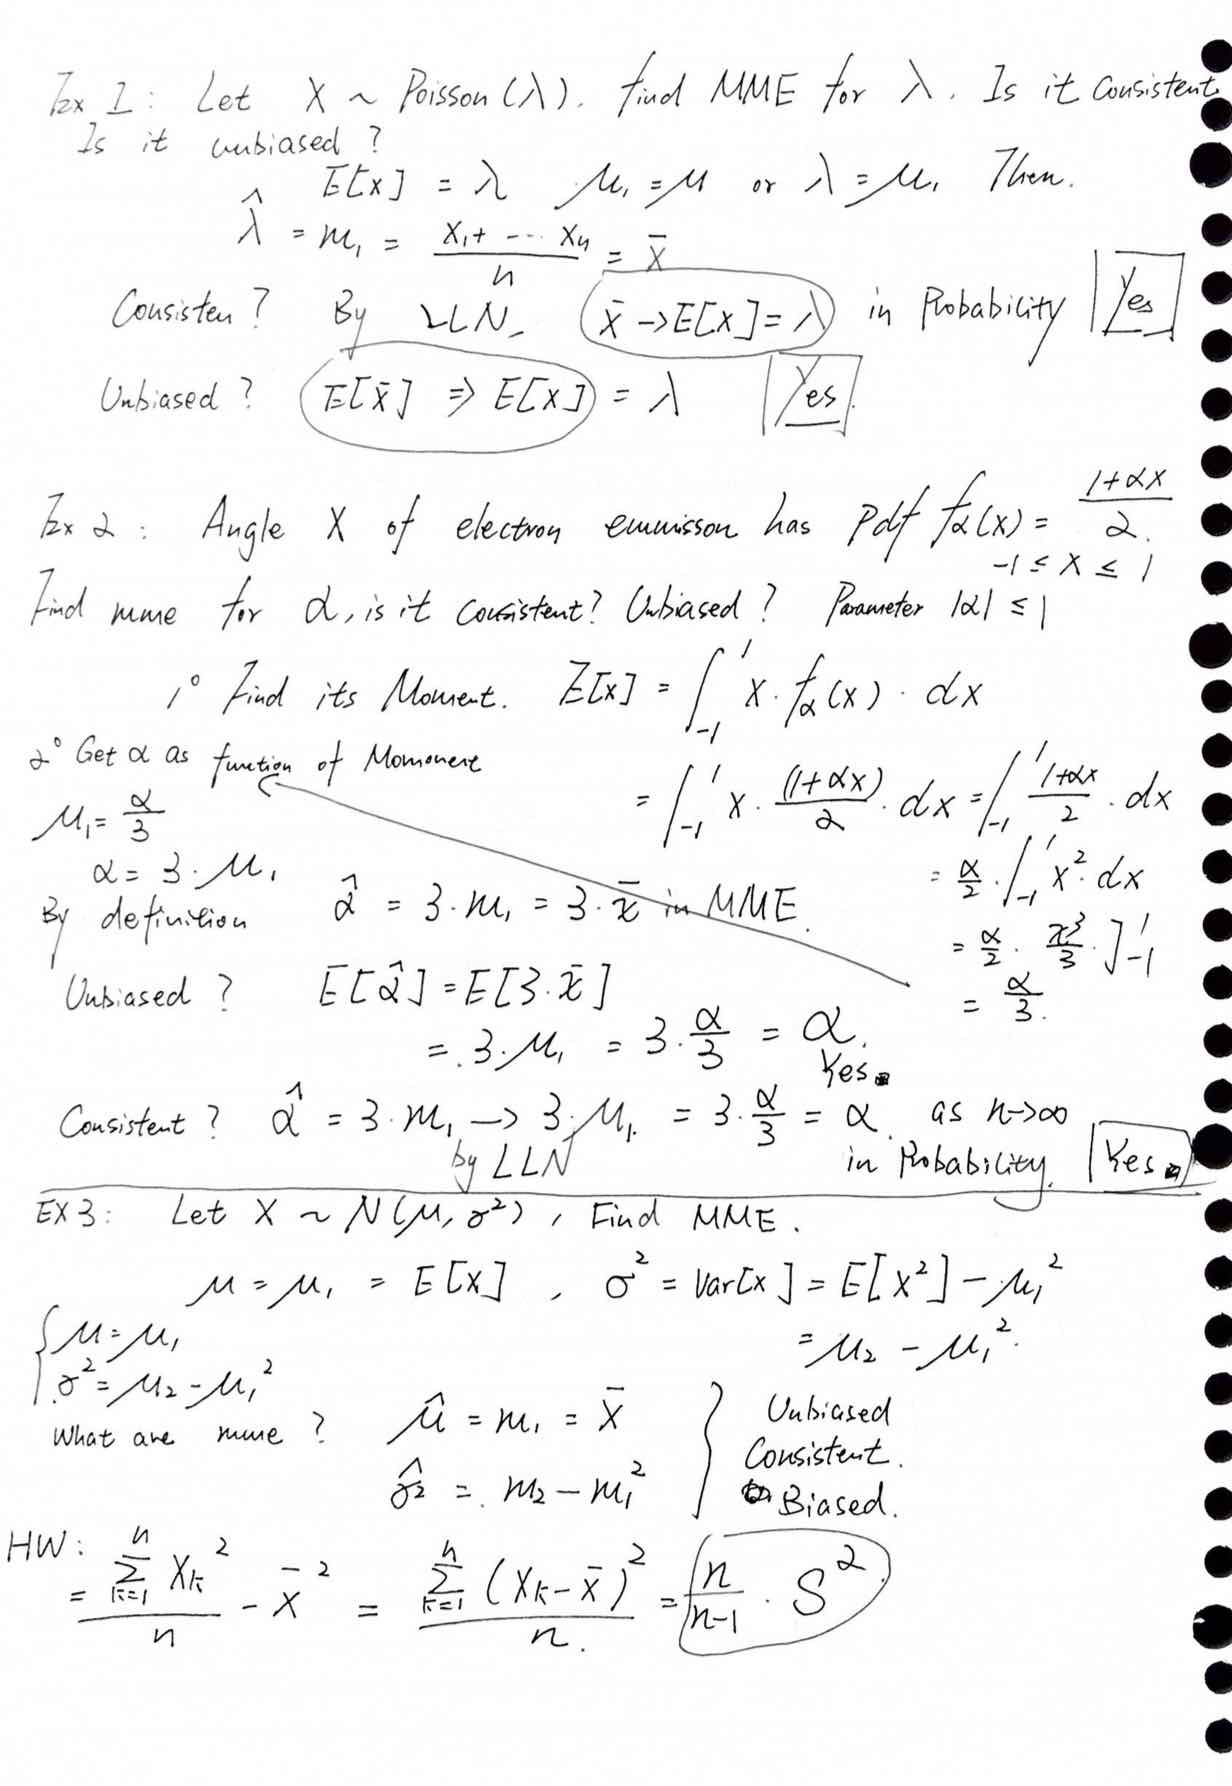 Ex 1: Let X ~ Poisson(λ). find MME for λ. Is it consistent
Is it unbiased?
E[x] = λ μ₁ = μ or λ = μ₁ Then.
λ̂ = m₁ = (x₁ + --- xₙ)/n = x̄
Consisten? By LLN, x̄ -> E[x] = λ in Probability Yes
Unbiased? E[x̄] => E[x] = λ Yes.
Ex 2: Angle X of electron emmisson has Pdf fα(x) = (1+αx)/2.
-1 ≤ x ≤ 1
Find mme for α, is it consistent? Unbiased? Parameter |α| ≤ 1
1° Find its Moment. E[x] = ∫₋₁¹ x · fα(x) · dx
2° Get α as function of Momonent
= ∫₋₁¹ x · (1+αx)/2 · dx = ∫₋₁¹ (1+αx)/2 · dx
μ₁ = α/3
α = 3 · μ₁
= α/2 · ∫₋₁¹ x² · dx
By definition α̂ = 3 · m₁ = 3 · x̄ in MME.
= α/2 · x³/3 · ]₋₁¹
Unbiased? E[α̂] = E[3 · x̄]
= α/3.
= . 3 · μ₁ = 3 · α/3 = α.
Yes
Consistent? α̂ = 3 · m₁ -> 3 · μ₁. = 3 · α/3 = α. as n->∞
by LLN in Probability. Yes
EX 3: Let X ~ N(μ, σ²), Find MME.
μ = μ₁ = E[x], σ² = Var[x] = E[x²] - μ₁²
= μ₂ - μ₁².
{ μ = μ₁
σ² = μ₂ - μ₁²
What are mme? μ̂ = m₁ = x̄ } Unbiased
Consistent.
σ̂² = . m₂ - m₁² Biased.
HW:
= (∑ₖ₌₁ⁿ xₖ²)/n - x̄² = (∑ₖ₌₁ⁿ (xₖ - x̄)²)/n. = n/(n-1) · S²